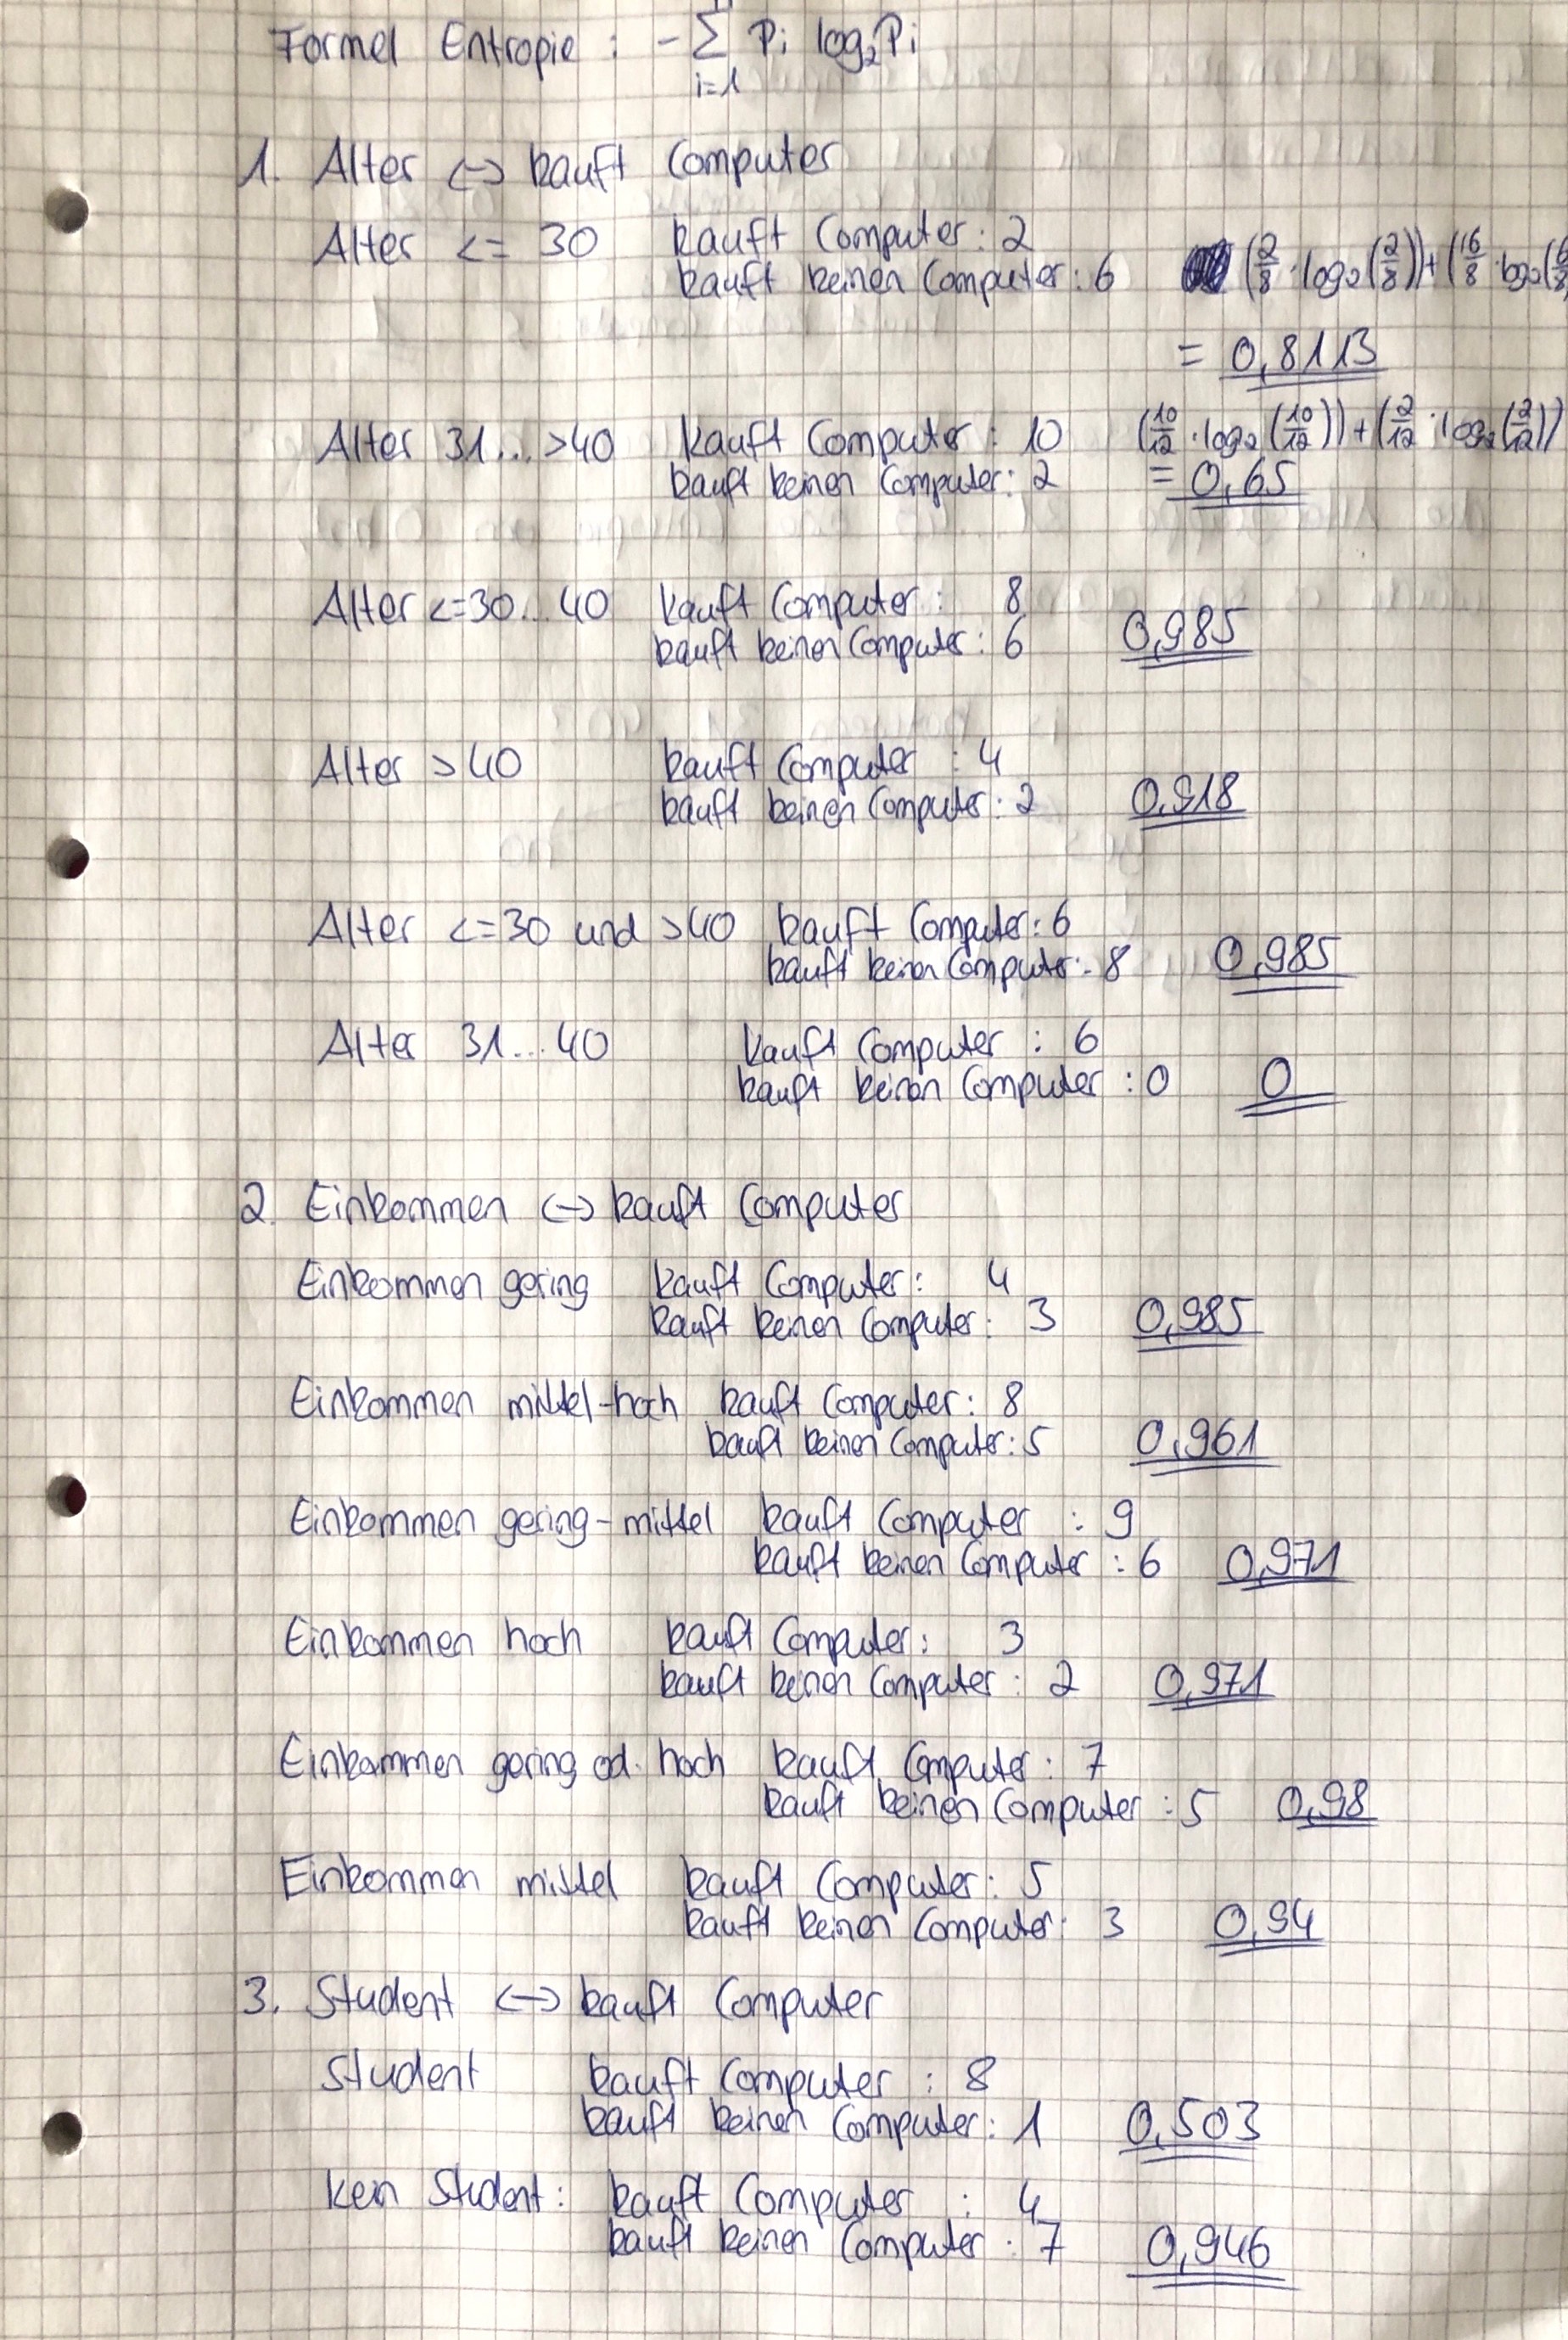 Formel Entropie : - Σ Pi log₂Pi
i=1
1. Alter <-> kauft Computer
Alter <= 30 kauft Computer: 2
kauft keinen Computer: 6 (2/8 · log₂(2/8)) + (16/8 · log₂(6/8
= 0,8113
Alter 31...>40 kauft Computer : 10 (10/12 · log₂(10/12)) + (2/12 · log₂(2/12))
kauft keinen Computer: 2 = 0,65
Alter <=30...40 kauft Computer: 8
kauft keinen Computer: 6 0,985
Alter >40 kauft Computer : 4
kauft keinen Computer: 2 0,918
Alter <=30 und >40 kauft Computer: 6
kauft keinen Computer: 8 0,985
Alter 31...40 kauft Computer : 6
kauft keinen Computer : 0 0
2. Einkommen <-> kauft Computer
Einkommen gering kauft Computer: 4
kauft keinen Computer: 3 0,985
Einkommen mittel-hoch kauft Computer: 8
kauft keinen Computer: 5 0,961
Einkommen gering-mittel kauft Computer : 9
kauft keinen Computer : 6 0,971
Einkommen hoch kauft Computer: 3
kauft keinen Computer : 2 0,971
Einkommen gering od. hoch kauft Computer : 7
kauft keinen Computer : 5 0,98
Einkommen mittel kauft Computer: 5
kauft keinen Computer: 3 0,94
3. Student <-> kauft Computer
Student kauft Computer : 8
kauft keinen Computer: 1 0,503
kein Student: kauft Computer : 4
kauft keinen Computer : 7 0,946